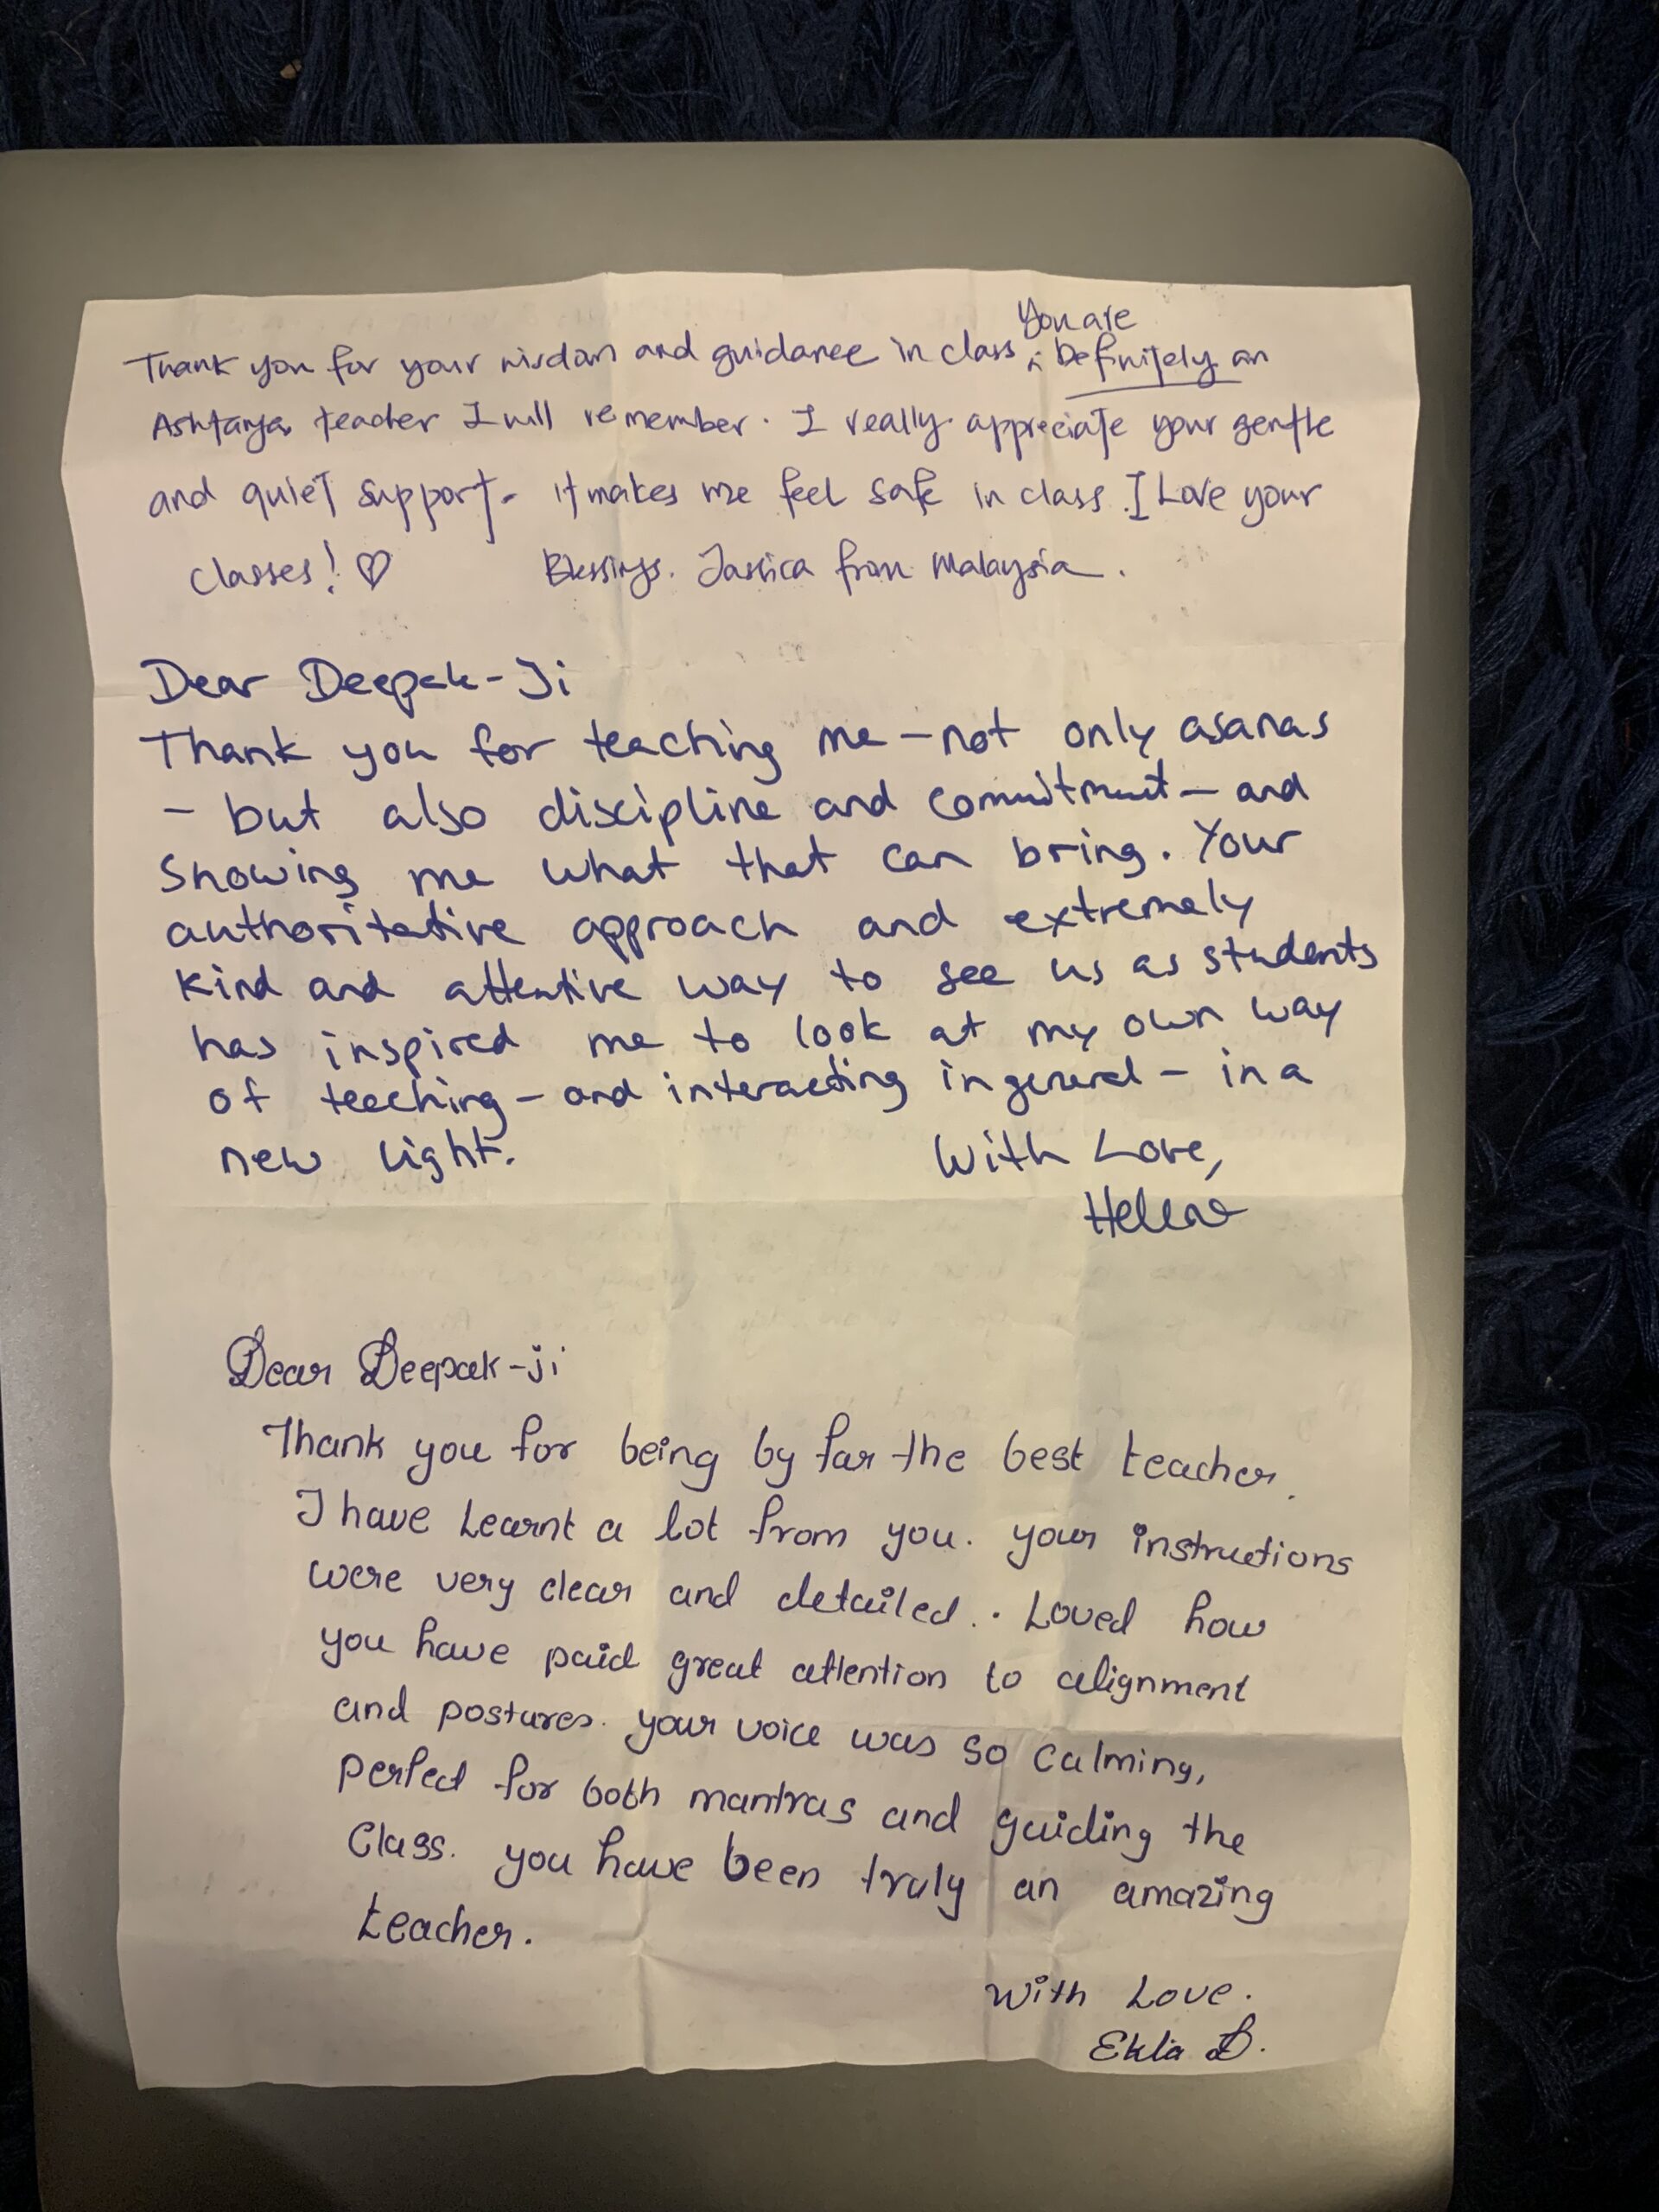 Thank you for your wisdom and guidance in class. You are Definitely an
Ashtanga teacher I will remember. I really appreciate your gentle
and quiet support. it makes me feel safe in class. I Love your
classes! ♡ Blessings. from Malaysia.
Dear Deepak-Ji
Thank you for teaching me - not only asanas
- but also discipline and commitment - and
showing me what that can bring. Your
authoritative approach and extremely
kind and attentive way to see us as students
has inspired me to look at my own way
of teaching - and interacting in general - in a
new light.
With Love,
Helena
Dear Deepak-ji
Thank you for being by far the best teacher.
I have Learnt a lot from you. your instructions
were very clear and detailed.. Loved how
you have paid great attention to alignment
and postures. your voice was so calming,
perfect for both mantras and guiding the
Class. you have been truly an amazing
teacher.
With Love.
Ekta B.